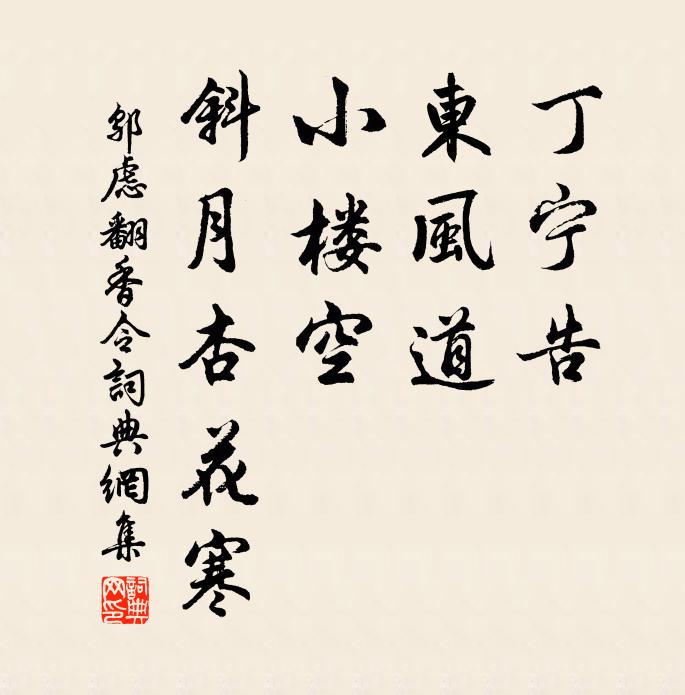 丁宁告
東風道
小楼空
斜月杏花寒
邬虑翻香令詞典網集
詞典网印